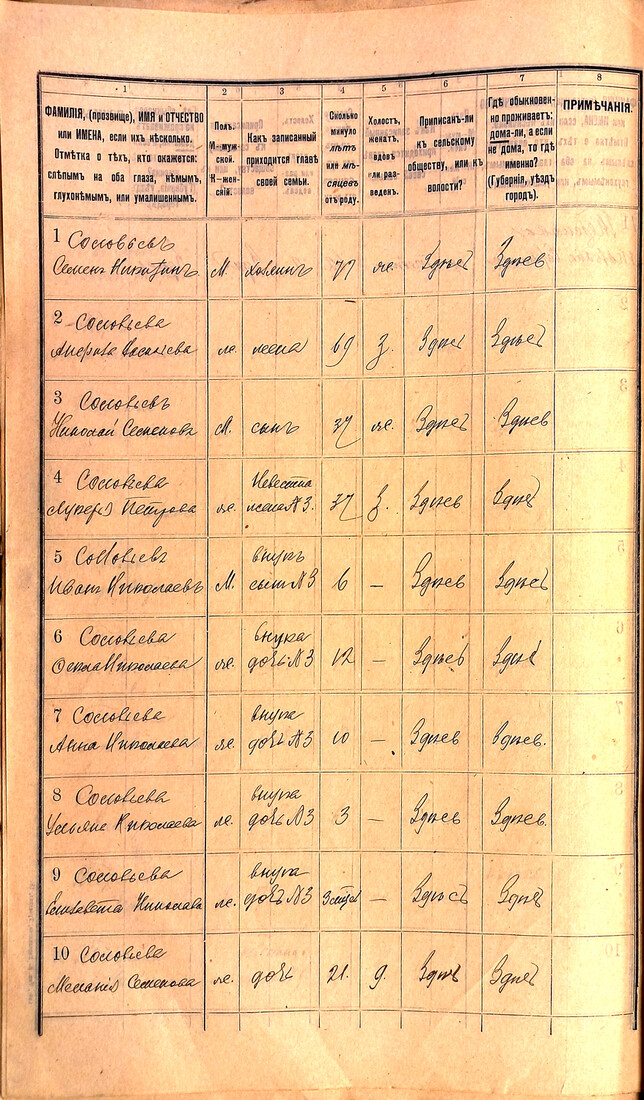 1
2
3
4
5
6
7
8
ФАМИЛІЯ, (прозвище), ИМЯ и ОТЧЕСТВО
или ИМЕНА, если ихъ нѣсколько.
Отмѣтка о тѣхъ, кто окажется:
слѣпымъ на оба глаза, нѣмымъ,
глухонѣмымъ, или умалишеннымъ.
Полъ.
М—муж-
ской.
Ж—жен-
скій.
Какъ записанный
приходится главѣ
своей семьи.
Сколько
минуло
лѣтъ
или мѣ-
сяцевъ
отъ роду.
Холостъ,
женатъ,
вдовъ
или раз-
веденъ.
Приписанъ-ли
къ сельскому
обществу, или къ
волости?
Гдѣ обыкновен-
но проживаетъ:
дома-ли, а если
не дома, то гдѣ
именно?
(Губернія, уѣздъ
городъ).
ПРИМѢЧАНІЯ.
1 Соловьевъ
Семенъ Никитинъ М. хозяинъ 77 же. Здѣсь Здѣсь
2 Соловьева
Васильева же. жена 69 З. Здѣсь Здѣсь
3 Соловьевъ
Николай Семенова М. сынъ 37 же. Здѣсь Здѣсь
4 Соловьева Невестка
Петрова же. жена №3. 37 З. Здѣсь Здѣсь
5 Соловьевъ внукъ
Иванъ Николаевъ М. сынъ №3 6 — Здѣсь Здѣсь
6 Соловьева внука
Фекла Николаева же. дочь №3 12 — Здѣсь Здѣсь
7 Соловьева внука
Анна Николаева же. дочь №3 10 — Здѣсь Здѣсь.
8 Соловьева внука
Ульяна Николаева же. дочь №3 3 — Здѣсь Здѣсь.
9 Соловьева внука
Елизавета Николаева же. дочь №3 — Здѣсь Здѣсь
10 Соловьева
Меланія Семенова же. дочь 21. д. Здѣсь Здѣсь